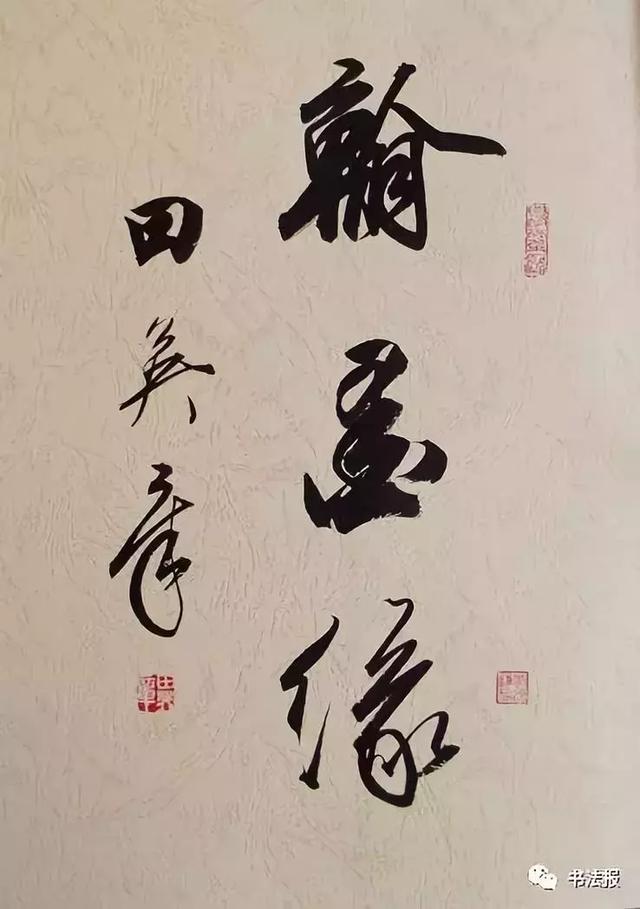 翰墨缘
田英章
书法报